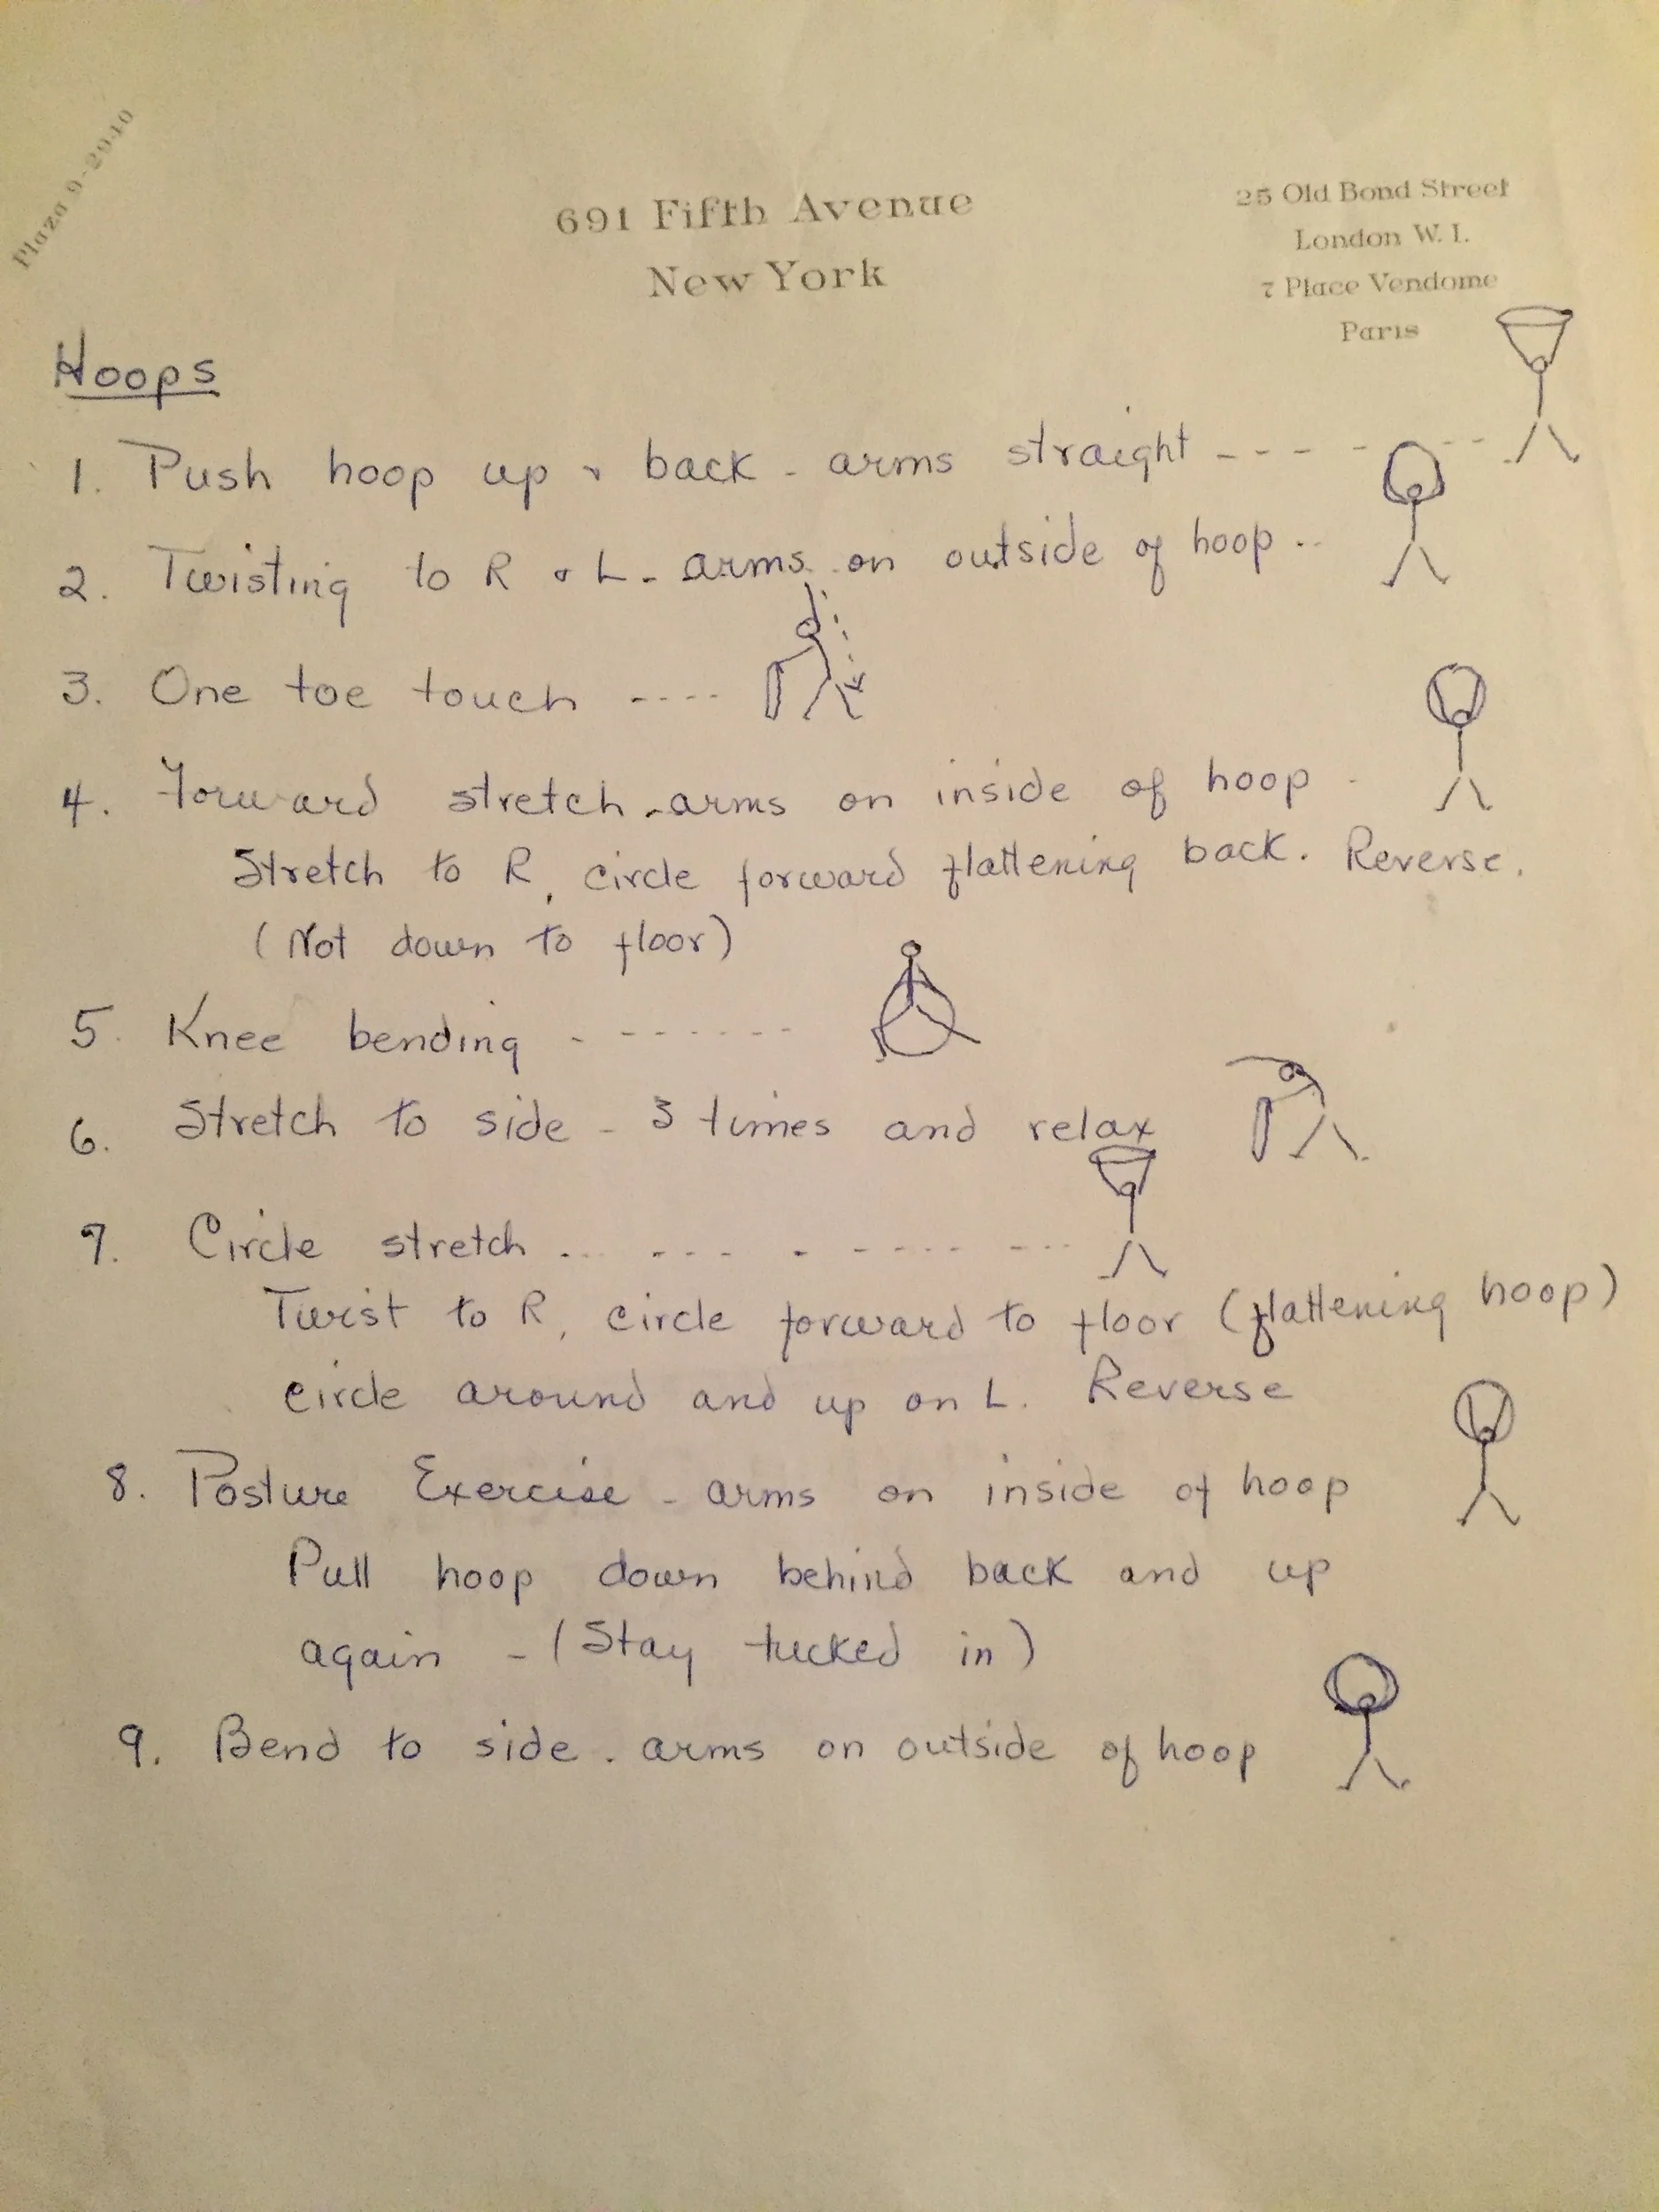 Plaza 9-2940
691 Fifth Avenue
New York
25 Old Bond Street
London W. I.
7 Place Vendome
Paris
Hoops
1. Push hoop up & back - arms straight ----
2. Twisting to R & L - arms on outside of hoop ..
3. One toe touch ----
4. Forward stretch - arms on inside of hoop -
Stretch to R, circle forward flattening back. Reverse.
(Not down to floor)
5. Knee bending - ------
6. Stretch to side - 3 times and relax
7. Circle stretch ... --- - ----- ---
Twist to R, circle forward to floor (flattening hoop)
circle around and up on L. Reverse
8. Posture Exercise - arms on inside of hoop
Pull hoop down behind back and up
again - (Stay tucked in)
9. Bend to side. arms on outside of hoop